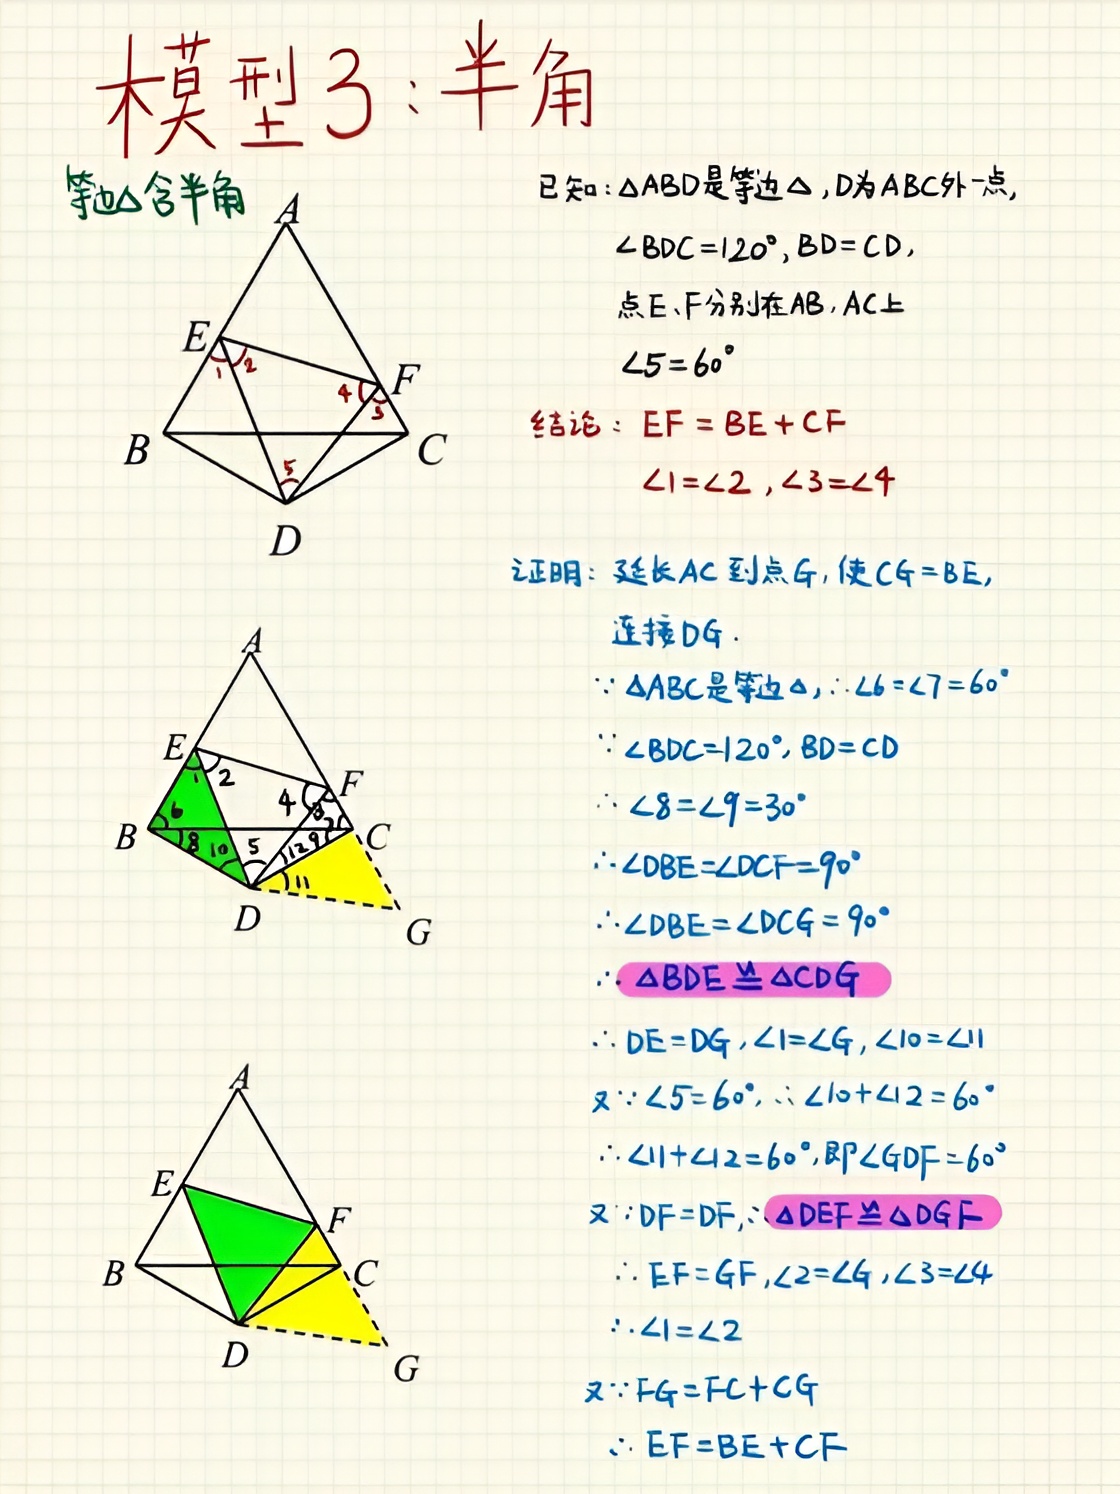 模型3:半角
等边△含半角
已知:△ABD是等边△,D为ABC外一点,
∠BDC=120°,BD=CD,
点E、F分别在AB,AC上
∠5=60°
结论:EF=BE+CF
∠1=∠2,∠3=∠4
A
E
1
2
F
4
3
B
C
5
D
证明:延长AC到点G,使CG=BE,
连接DG.
∵△ABC是等边△,∴∠6=∠7=60°
∵∠BDC=120°,BD=CD
∴∠8=∠9=30°
∴∠DBE=∠DCF=90°
∴∠DBE=∠DCG=90°
∴△BDE≌△CDG
∴DE=DG,∠1=∠G,∠10=∠11
又∵∠5=60°,∴∠10+∠12=60°
∴∠11+∠12=60°,即∠GDF=60°
又∵DF=DF,∴△DEF≌△DGF
∴EF=GF,∠2=∠G,∠3=∠4
∴∠1=∠2
又∵FG=FC+CG
∴EF=BE+CF
A
E
1
2
F
4
3
6
7
B
8
10
5
12
9
C
11
D
G
A
E
F
B
C
D
G